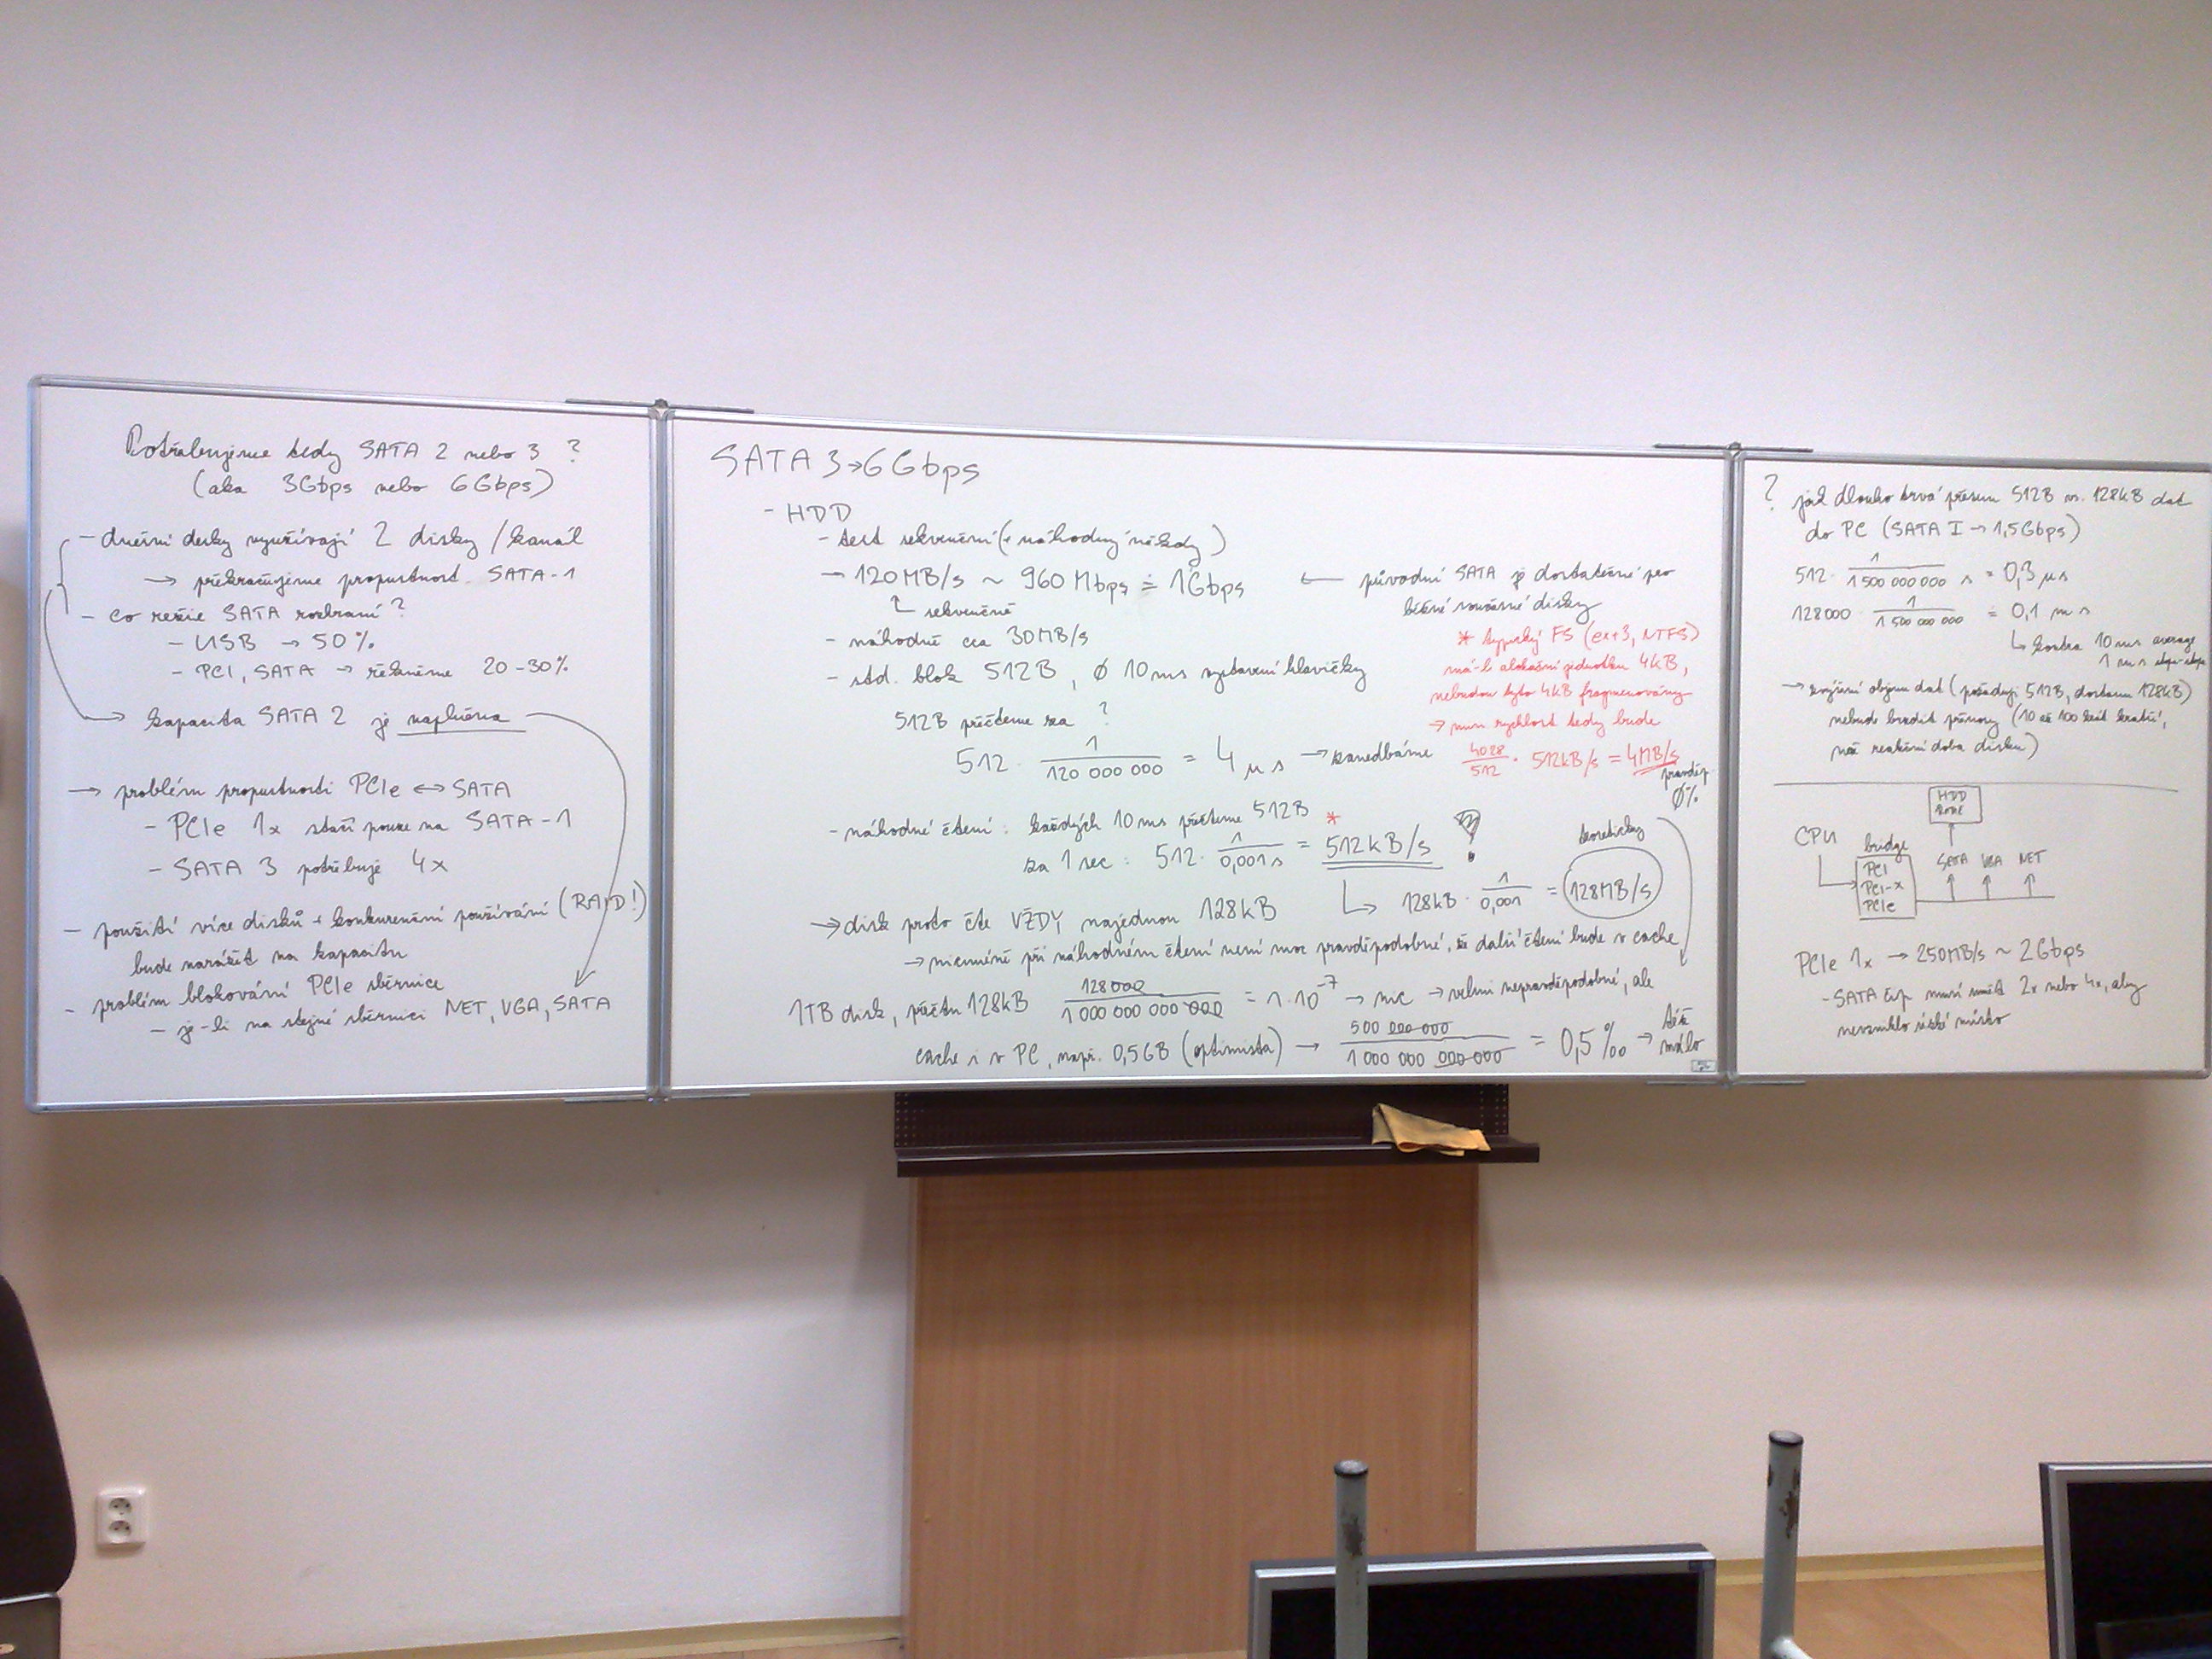 Potřebujeme tedy SATA 2 nebo 3 ?
(aka 3Gbps nebo 6Gbps)
- dnešní desky využívají 2 disky / kanál
→ překračujeme propustnost SATA-1
- co režie SATA rozhraní ?
- USB → 50%
- PCI, SATA → řekněme 20-30%
→ kapacita SATA 2 je naplněna
→ problém propustnosti PCIe ↔ SATA
- PCIe 1x stačí pouze na SATA-1
- SATA 3 potřebuje 4x
- použití více disků + konkurenční používání (RAID!)
bude narážet na kapacitu
- problém blokování PCIe sběrnice
- je-li na stejné sběrnici NET, VGA, SATA
SATA 3 → 6Gbps
- HDD
- test sekvenční (+ náhodný někdy)
→ 120MB/s ~ 960 Mbps ≐ 1Gbps ← původní SATA je dostatečné pro
běžné současné disky
↳ sekvenčně
- náhodně cca 30MB/s
- std. blok 512B, Ø 10ms vystavení hlavičky
* typický FS (ext3, NTFS)
má-li alokační jednotku 4kB,
nebudou tyto 4kB fragmenovány
→ min. rychlost tedy bude
4028/512 · 512kB/s = 4MB/s
pravděp.
0%
512B přečteme za ?
512 · 1/120 000 000 = 4 µs → zanedbáme
- náhodné čtení : každých 10ms přečteme 512B *
za 1 sec : 512 · 1/0,001s = 512kB/s !
↳ 128kB · 1/0,001 = 128MB/s
teoreticky
→ disk proto čte VŽDY najednou 128kB
→ nicméně při náhodném čtení není moc pravděpodobné, že další čtení bude v cache
1TB disk, přečtu 128kB 128000/1 000 000 000 000 = 1·10⁻⁷ → nic → velmi nepravděpodobné, ale
cache i v PC, např. 0,5GB (optimista) → 500 000 000/1 000 000 000 000 = 0,5 ‰ → též málo
? jak dlouho trvá přesun 512B vs. 128kB dat
do PC (SATA I → 1,5Gbps)
512 · 1/1 500 000 000 s = 0,3 µs
128000 · 1/1 500 000 000 = 0,1 ms
↳ kontra 10ms average
1 ms stopa-stopa
→ zvýšení objemu dat (požaduji 512B, dostanu 128kB)
nebude brzdit přenosy (10 až 100 krát kratší,
než reakční doba disku)
HDD
CPU
bridge
PCI
PCI-x
PCIe
SATA VGA NET
PCIe 1x → 250MB/s ~ 2Gbps
- SATA čip musí umět 2x nebo 4x, aby
nevzniklo úzké místo